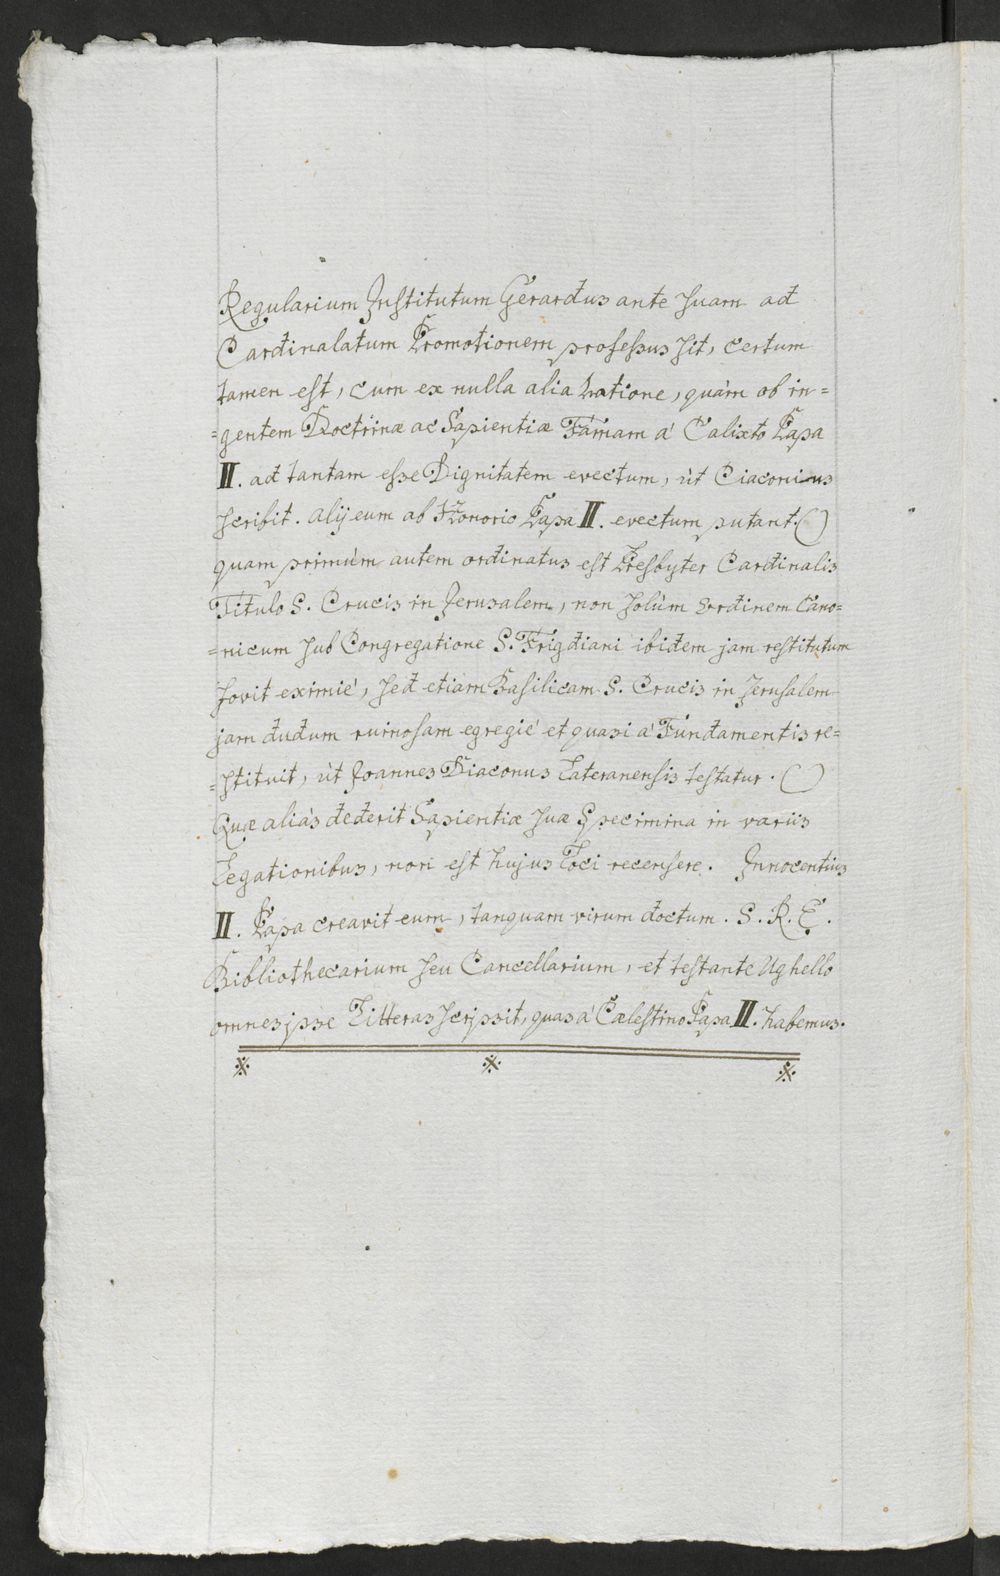 Regularium Institutum Gerardus ante suam ad
Cardinalatum Promotionem professus sit, certum
tamen est, cum ex nulla alia ratione, quàm ob in=
=gentem Doctrinæ ac Sapientiæ Famam á Calixto Papa
II. ad tantam esse Dignitatem evectum, ùt Ciaconius
scribit. alij eum ab Honorio Papa II. evectum putant. ()
quam primùm autem ordinatus est Presbyter Cardinalis
Titulo S. Crucis in Jerusalem, non solùm Ordinem Cano=
=nicum sub Congregatione S. Frigdiani ibidem jam restitutum
fovit eximié, sed etiam Basilicam S. Crucis in Jerusalem
jam dudum ruinosam egregié et quasi á Fundamentis re=
=stituit, ùt Joannes Diaconus Lateranensis testatur. ()
Quæ aliàs dederit Sapientiæ suæ Specimina in variis
Legationibus, non est hujus Loci recensere. Innocentius
II. Papa creavit eum, tanquam virum doctum. S. R. E.
Bibliothecarium seu Cancellarium, et testante Ughello
omnes ipse Litteras scripsit, quas á Cælestino Papa II. habemus.